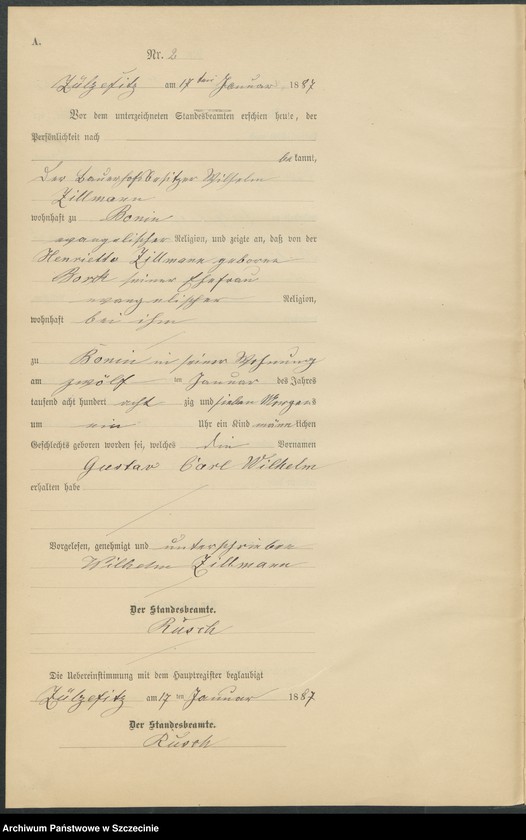 A.
Nr. 2
Zülzefitz am 17 ten Januar 1887
Vor dem unterzeichneten Standesbeamten erschien heute, der
Persönlichkeit nach
bekannt,
der Bauerhofsbesitzer Wilhelm
Zillmann
wohnhaft zu Bonin
evangelischer Religion, und zeigte an, daß von der
Henriette Zillmann geborne
Bork seiner Ehefrau
evangelischer Religion,
wohnhaft bei ihm
zu Bonin in seiner Wohnung
am zwölf ten Januar des Jahres
tausend acht hundert acht zig und sieben Morgens
um ein Uhr ein Kind männlichen
Geschlechts geboren worden sei, welches die Vornamen
Gustav Carl Wilhelm
erhalten habe
Vorgelesen, genehmigt und unterschrieben
Wilhelm Zillmann
Der Standesbeamte.
Rusch
Die Uebereinstimmung mit dem Hauptregister beglaubigt
Zülzefitz am 17 ten Januar 1887
Der Standesbeamte.
Rusch
Archiwum Państwowe w Szczecinie